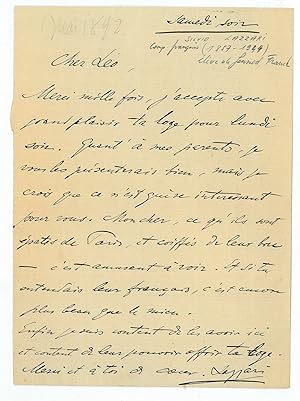 Samedi soir
Juin 1892
SILVIO LAZZARI
Comp. français (1857-1944)
élève de Franck
Cher Léo,
Merci mille fois, j'accepte avec
grand plaisir ta loge pour lundi
soir. Quant à mes parents, je
vous les présenterais bien, mais je
crois que ce n'est guère intéressant
pour vous. Mon cher, ce qu'ils sont
épatés de Paris, et coiffés de leur
— c'est amusant à voir. Et si tu
entendais leur français, c'est encore
plus beau que le mien.
Enfin je suis content de les avoir ici
et content de leur pouvoir offrir ta loge.
Merci et à toi de cœur. Lazzari